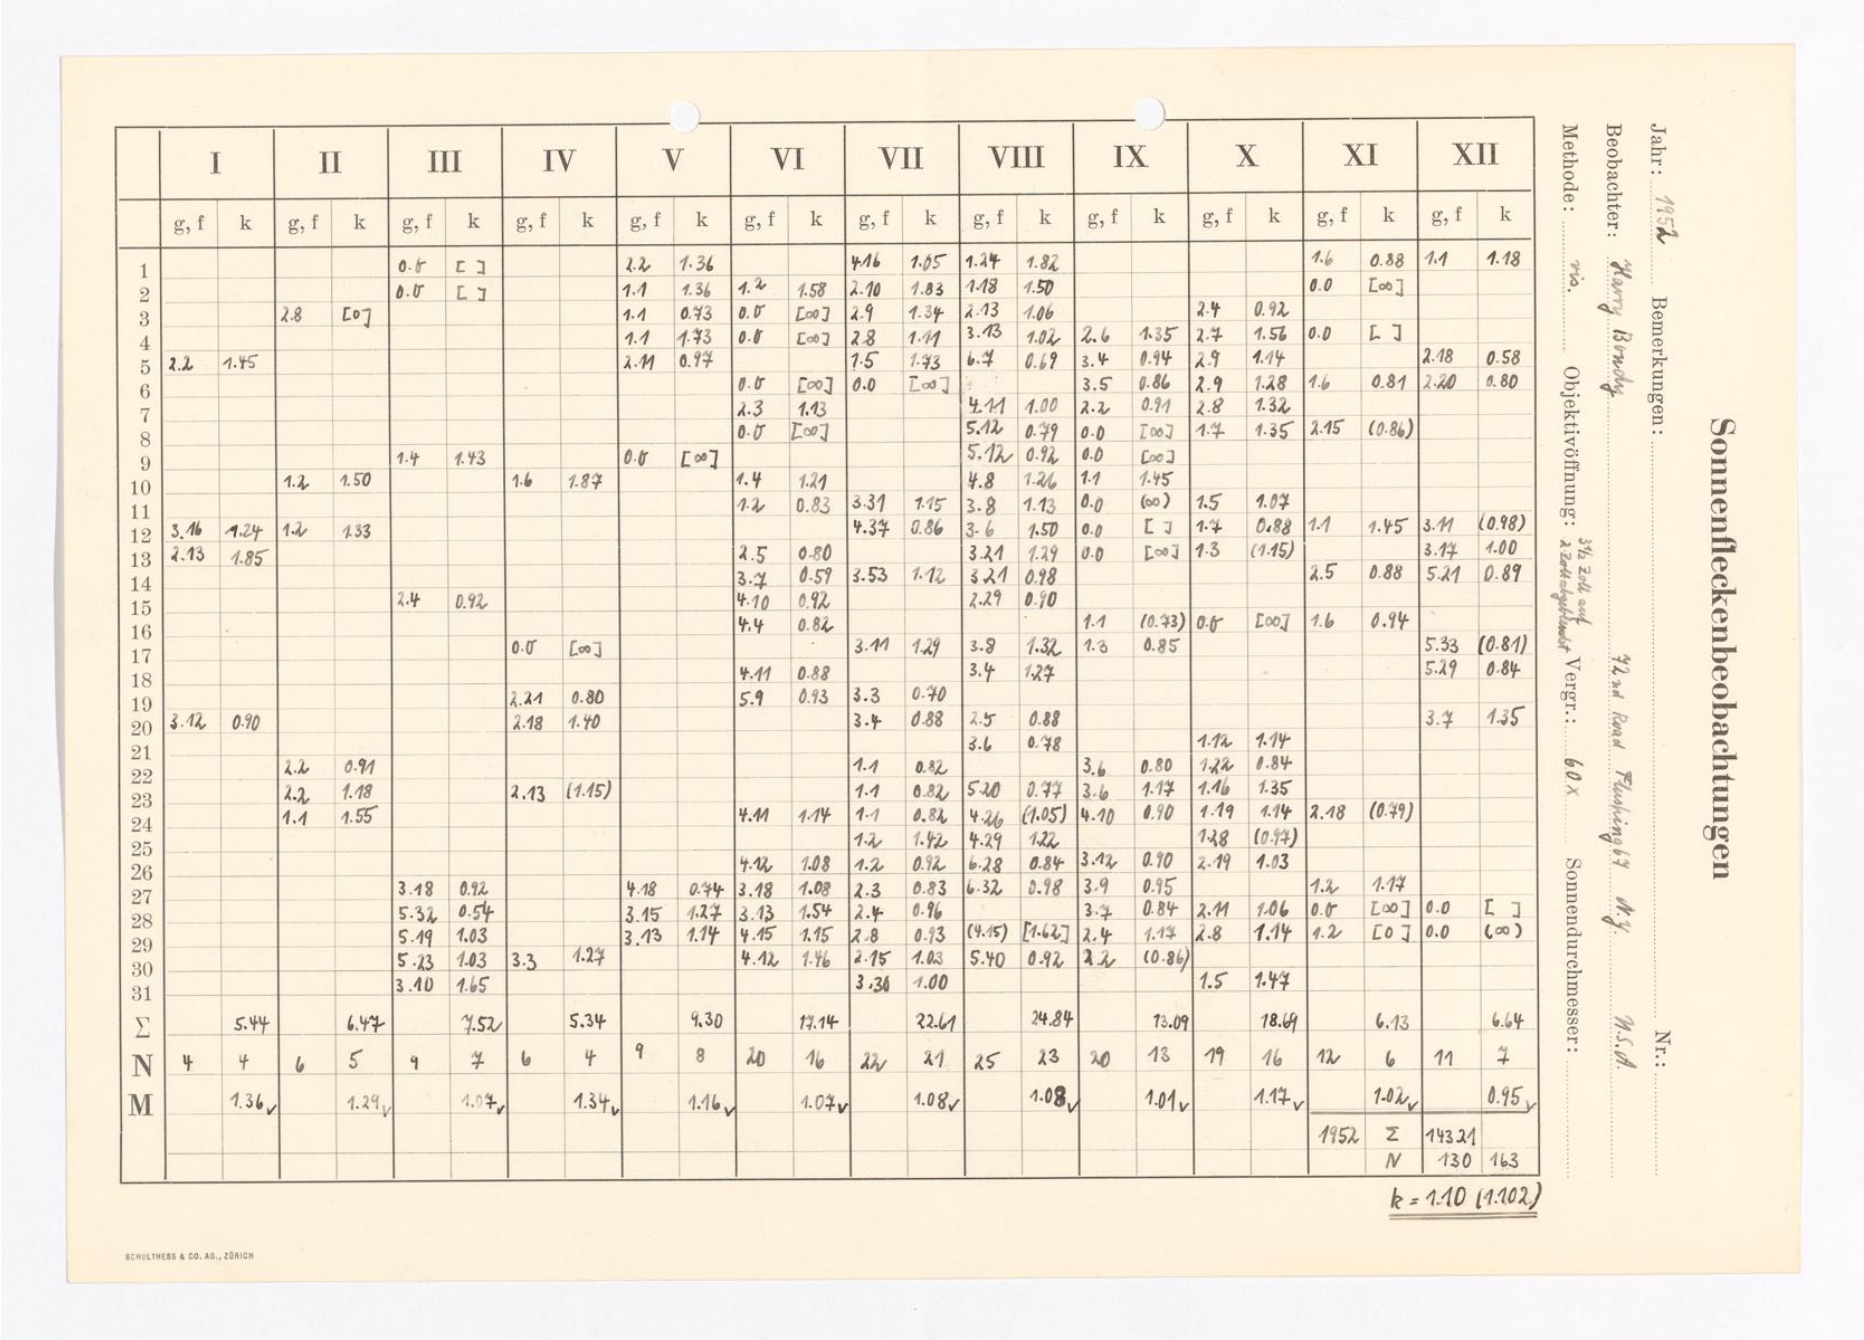 Sonnenfleckenbeobachtungen
Jahr: 1952 Bemerkungen: Nr.:
Beobachter: Harry Bondy 72nd Road Flushing 67 N.Y. U.S.A.
Methode: vis. Objektivöffnung: 3½ Zoll auf 2 Zoll abgeblendet Vergr.: 60 x Sonnendurchmesser:
I II III IV V VI VII VIII IX X XI XII
g, f k g, f k g, f k g, f k g, f k g, f k g, f k g, f k g, f k g, f k g, f k g, f k
1 0.0 [ ] 2.2 1.36 4.16 1.05 1.24 1.82 1.6 0.88 1.1 1.18
2 0.0 [ ] 1.1 1.36 1.2 1.58 2.10 1.83 1.18 1.50 0.0 [∞]
3 2.8 [0] 1.1 0.73 0.0 [∞] 2.9 1.34 2.13 1.06 2.4 0.92
4 1.1 1.73 0.0 [∞] 2.8 1.11 3.13 1.02 2.6 1.35 2.7 1.56 0.0 [ ]
5 2.2 1.45 2.11 0.97 1.5 1.73 6.7 0.69 3.4 0.94 2.9 1.14 2.18 0.58
6 0.0 [∞] 0.0 [∞] 3.5 0.86 2.9 1.28 1.6 0.81 2.20 0.80
7 2.3 1.13 4.11 1.00 2.2 0.91 2.8 1.32
8 0.0 [∞] 5.12 0.79 0.0 [∞] 1.7 1.35 2.15 (0.86)
9 1.4 1.43 0.0 [∞] 5.12 0.92 0.0 [∞]
10 1.2 1.50 1.6 1.87 1.4 1.21 4.8 1.26 1.1 1.45
11 1.2 0.83 3.31 1.15 3.8 1.13 0.0 (∞) 1.5 1.07
12 3.16 1.24 1.2 1.33 4.37 0.86 3.6 1.50 0.0 [ ] 1.7 0.88 1.1 1.45 3.11 (0.98)
13 2.13 1.85 2.5 0.80 3.21 1.29 0.0 [∞] 1.3 (1.15) 3.17 1.00
14 3.7 0.59 3.53 1.12 3.21 0.98 2.5 0.88 5.21 0.89
15 2.4 0.92 4.10 0.92 2.29 0.90
16 4.4 0.82 1.1 (0.73) 0.0 [∞] 1.6 0.94
17 0.0 [∞] 3.11 1.29 3.8 1.32 1.3 0.85 5.33 (0.81)
18 4.11 0.88 3.4 1.27 5.29 0.84
19 2.21 0.80 5.9 0.93 3.3 0.70
20 3.12 0.90 2.18 1.40 3.4 0.88 2.5 0.88 3.7 1.35
21 3.6 0.78 1.12 1.14
22 2.2 0.91 1.1 0.82 3.6 0.80 1.22 0.84
23 2.2 1.18 2.13 (1.15) 1.1 0.82 5.20 0.77 3.6 1.17 1.16 1.35
24 1.1 1.55 4.11 1.14 1.1 0.82 4.26 (1.05) 4.10 0.90 1.19 1.14 2.18 (0.79)
25 1.2 1.42 4.29 1.22 1.28 (0.97)
26 4.12 1.08 1.2 0.92 6.28 0.84 3.12 0.90 2.19 1.03
27 3.18 0.92 4.18 0.74 3.18 1.08 2.3 0.83 6.32 0.98 3.9 0.95 1.2 1.17
28 5.32 0.54 3.15 1.27 3.13 1.54 2.4 0.96 3.7 0.84 2.11 1.06 0.0 [∞] 0.0 [ ]
29 5.19 1.03 3.13 1.14 4.15 1.15 2.8 0.93 (4.15) [1.62] 2.4 1.17 2.8 1.14 1.2 [0] 0.0 (∞)
30 5.23 1.03 3.3 1.27 4.12 1.46 2.15 1.03 5.40 0.92 2.2 (0.86)
31 3.10 1.65 3.30 1.00 1.5 1.47
Σ 5.44 6.47 7.52 5.34 9.30 17.14 22.61 24.84 13.09 18.69 6.13 6.64
N 4 4 6 5 9 7 6 4 9 8 20 16 22 21 25 23 20 13 19 16 12 6 11 7
M 1.36✓ 1.29✓ 1.07✓ 1.34✓ 1.16✓ 1.07✓ 1.08✓ 1.08✓ 1.01✓ 1.17✓ 1.02✓ 0.95✓
1952 Σ 143 21
N 130 163
k = 1.10 (1.102)
SCHULTHESS & CO. AG., ZÜRICH